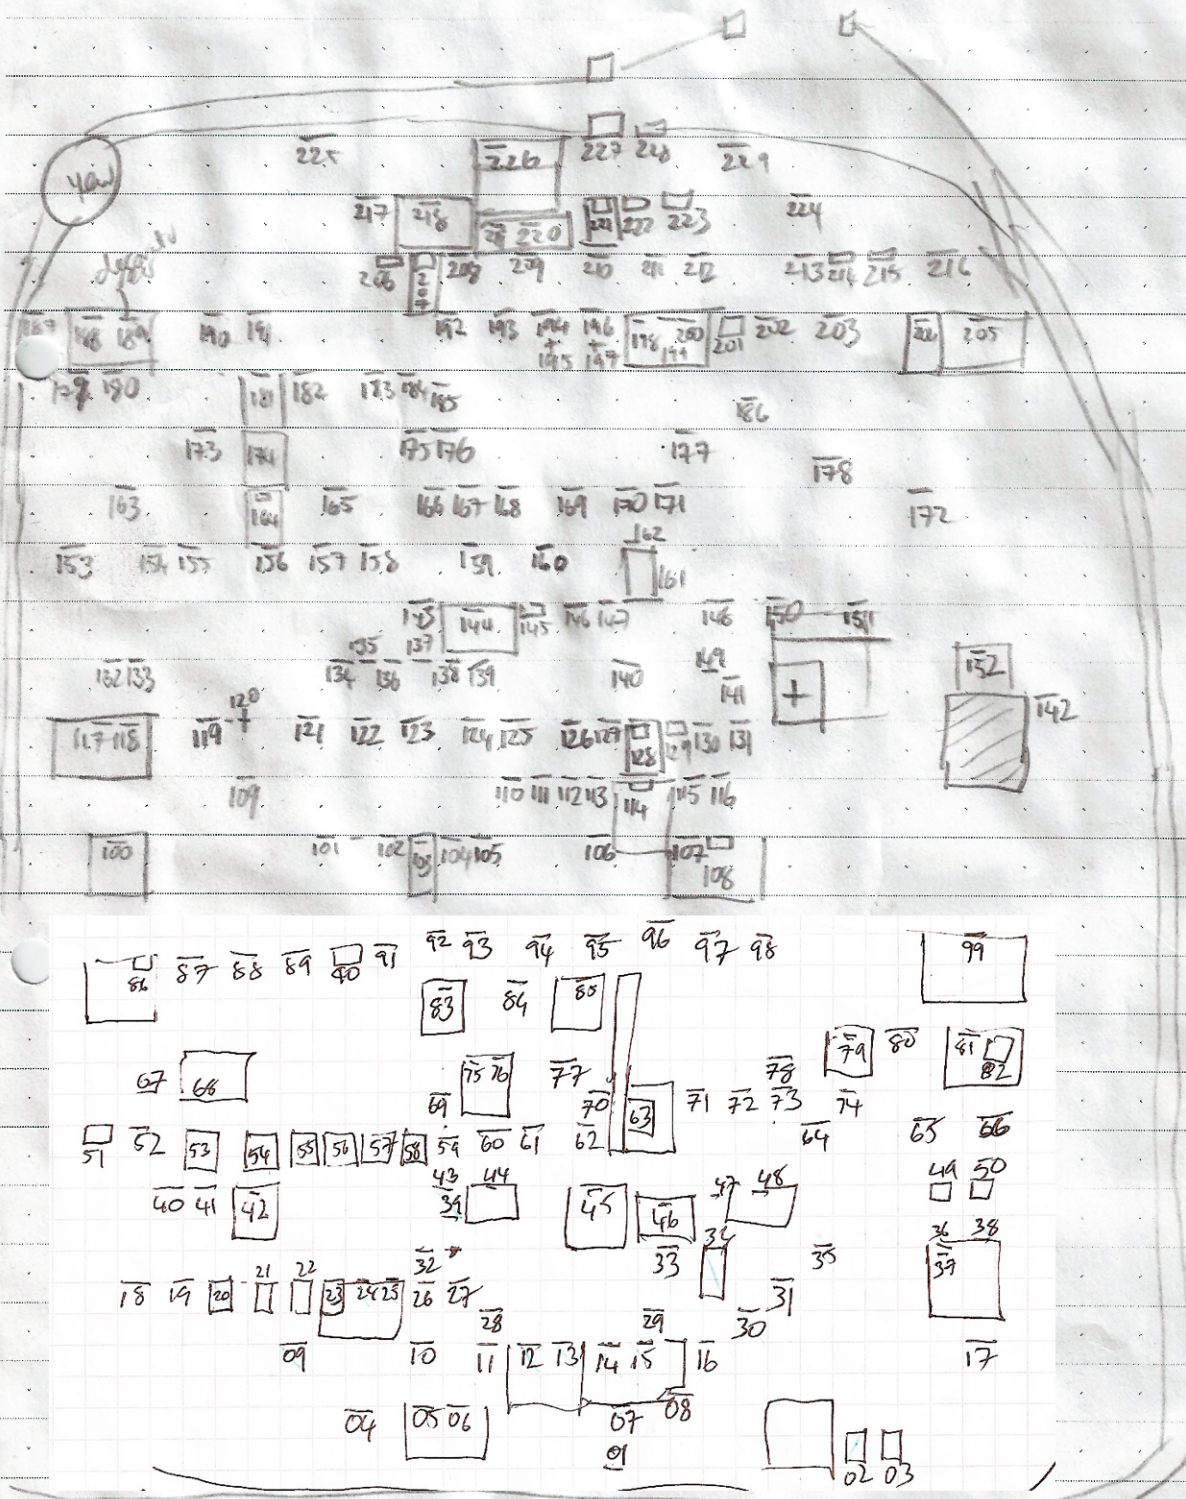 225 226 227 228 229
yew
217 218 219 220 221 222 223 224
206 207 208 209 210 211 212 213 214 215 216
187 188 189 190 191 192 193 194 196 198 200 201 202 203 204 205
195 197 199
179 180 181 182 183 184 185
186
173 174 175 176 177
178
163 164 165 166 167 168 169 170 171 172
162
153 154 155 156 157 158 159 160 161
143 144 145 146 147 148 150 151
135 137
149 152
132 133 134 136 138 139 140 141 142
120
117 118 119 121 122 123 124 125 126 127 128 129 130 131
109 110 111 112 113 114 115 116
100 101 102 103 104 105 106 107
108
92 93 94 95 96 97 98 99
86 87 88 89 90 91
83 84 85
79 80 81
82
67 68 75 76 77 78
69 70 63 71 72 73 74
51 52 53 54 55 56 57 58 59 60 61 62 64 65 66
43 44 47 48 49 50
40 41 42 39 45 46
34 36 38
32 33 35 37
21 22
18 19 20 23 24 25 26 27 31
28 29 30
09 10 11 12 13 14 15 16 17
04 05 06 07 08
01 02 03